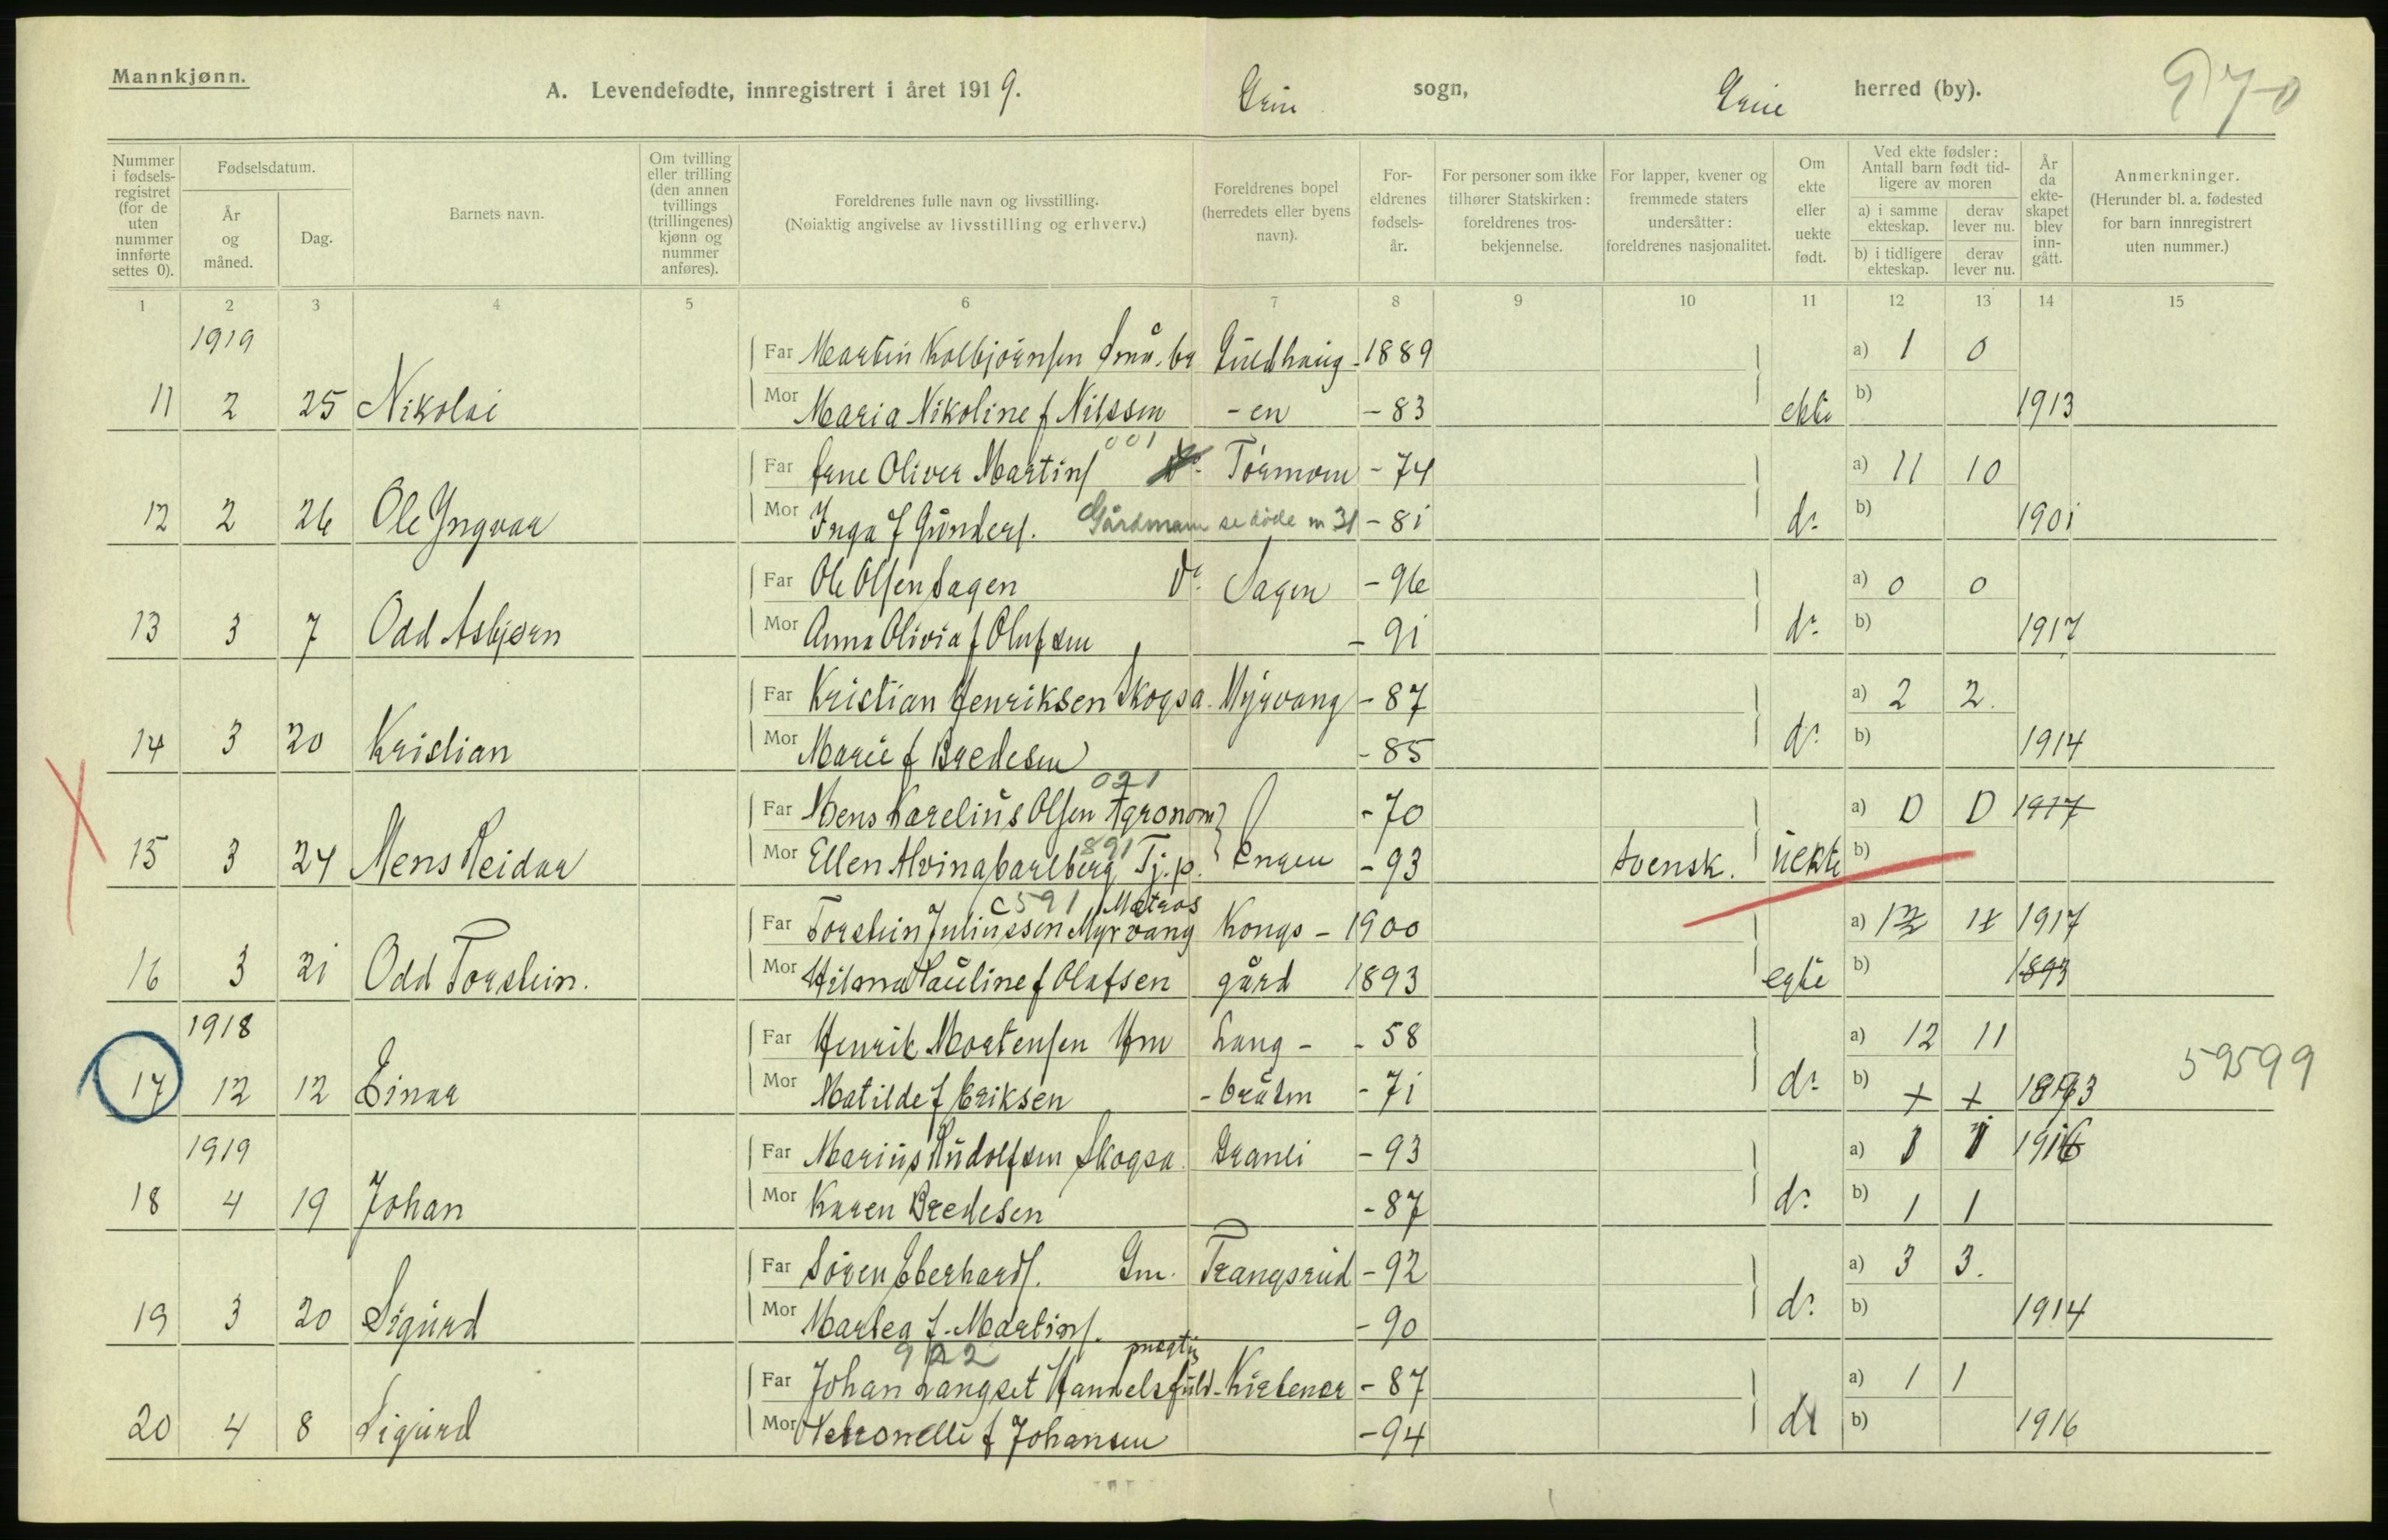 Mannkjønn.
A. Levendefødte, innregistrert i året 1919. Grue sogn, Grue herred (by). 970
Nummer i fødsels-registret (for de uten nummer innførte settes 0).
Fødselsdatum.
År og måned.
Dag.
Barnets navn.
Om tvilling eller trilling (den annen tvillings (trillingenes) kjønn og nummer anføres).
Foreldrenes fulle navn og livsstilling.
(Nøiaktig angivelse av livsstilling og erhverv.)
Foreldrenes bopel (herredets eller byens navn).
For-eldrenes fødsels-år.
For personer som ikke tilhører Statskirken: foreldrenes tros-bekjennelse.
For lapper, kvener og fremmede staters undersåtter: foreldrenes nasjonalitet.
Om ekte eller uekte født.
Ved ekte fødsler: Antall barn født tid-ligere av moren
a) i samme ekteskap.
derav lever nu.
b) i tidligere ekteskap.
derav lever nu.
År da ekte-skapet blev inn-gått.
Anmerkninger.
(Herunder bl. a. fødested for barn innregistrert uten nummer.)
1 2 3 4 5 6 7 8 9 10 11 12 13 14 15
1919
Far Martin Kolbjørnsen Små.br Guldhaug - 1889 a) 1 0
11 2 25 Nikolai Mor Maria Nikoline f Nilssen - en - 83 ekte b) 1913
001
Far Arne Oliver Martins Tørmoen - 74 a) 11 10
12 2 26 Ole Yngvar Mor Inga f Gunders. Gårdmann se døde nr 31 - 81 do b) 1901
Far Ole Olsen Sagen do Sagen - 96 a) 0 0
13 3 7 Odd Asbjørn Mor Anna Olivia f Olufsen - 91 do b) 1917
Far Kristian Henriksen Skogsa. Myrvang - 87 a) 2 2.
14 3 20 Kristian Mor Marie f Bredesen - 85 do b) 1914
021
Far Mens Karelius Olsen Agronom - 70 a) 0 0 1917
891
15 3 24 Mens Reidar Mor Ellen Alvina Carlberg Tj.p. Engen - 93 svensk. uekte b)
C591 Matros
Far Torstein Juliussen Myrvang Kongs - 1900 a) 1 1 1917
16 3 21 Odd Torstein. Mor Hilma Pauline f Olafsen gård 1893 egte b) 1893
1918
Far Henrik Mortensen Hm Lang - - 58 a) 12 11
17 12 12 Einar Mor Matilde f Eriksen - bråten - 71 do b) + + 1893 59599
1919
Far Marius Rudolfsen Skogsa. Granli - 93 a) 1 1 1916
18 4 19 Johan Mor Karen Bredesen - 87 do b) 1 1
Far Søren Eberhards. Gm. Trangsrud - 92 a) 3 3.
19 3 20 Sigurd Mor Martea f. Martins. - 90 do b) 1914
922 megtig
Far Johan Langset Handelsfuld- Kirkenær - 87 a) 1 1
20 4 8 Sigurd Mor Petronelle f Johansen - 94 do b) 1916